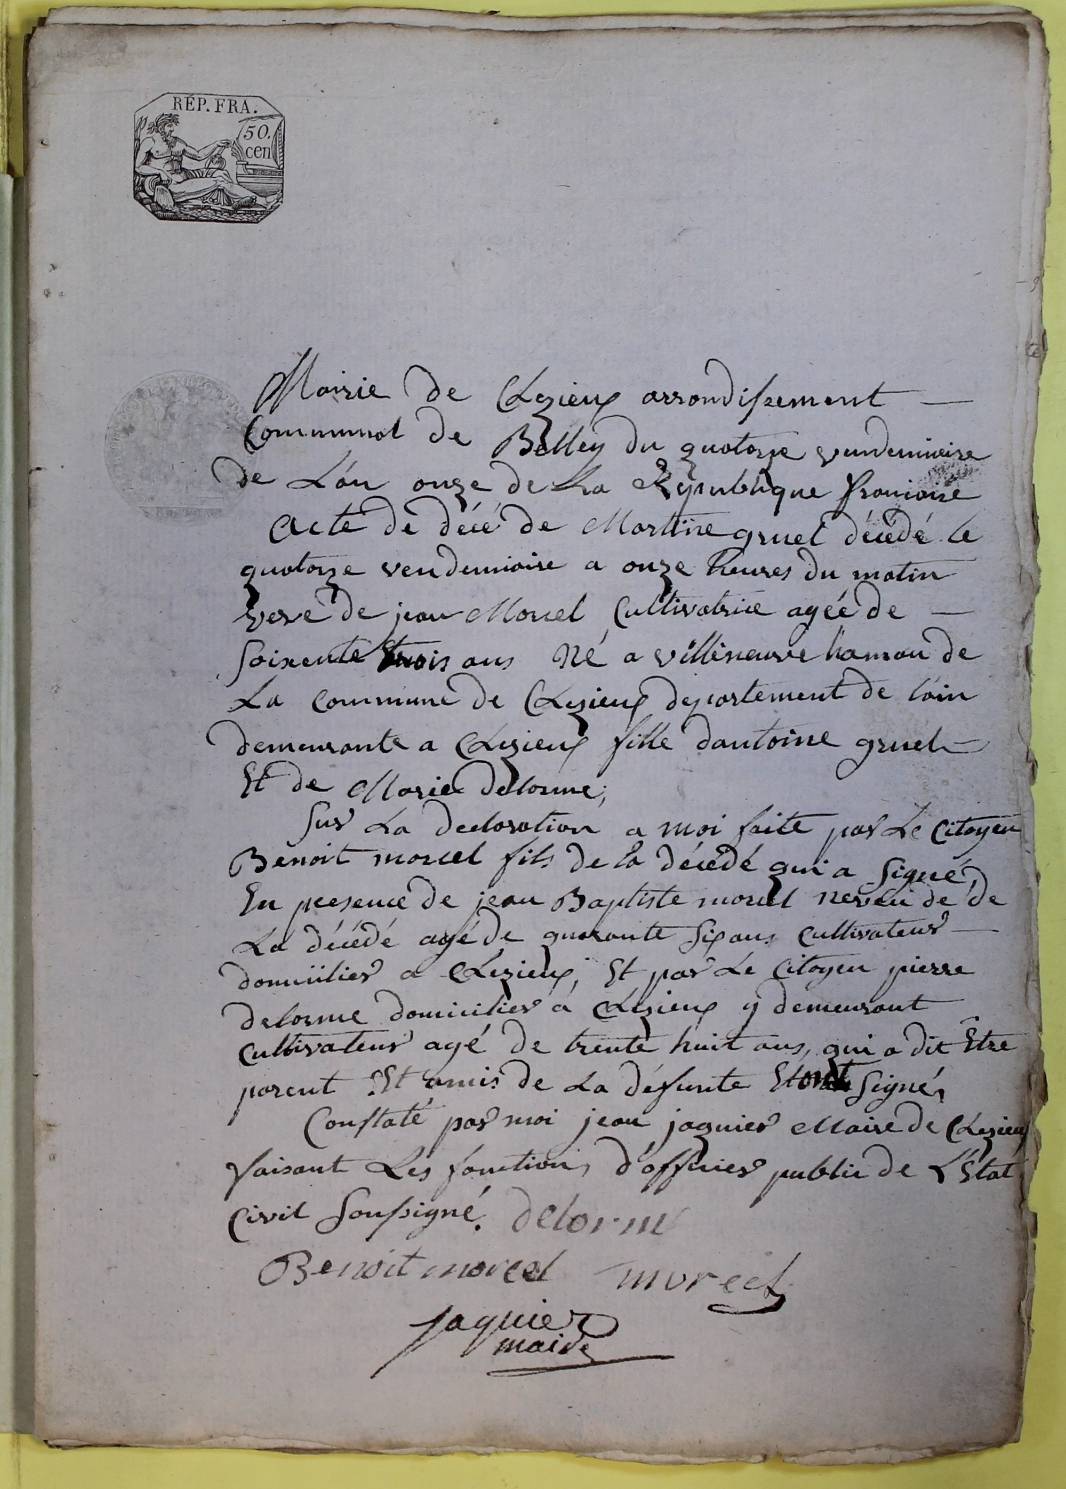 REP. FRA.
50.
cen
Mairie de Chezieux arrondissement
Communal de Belley du quatorze vendemiaire
de L'an onze de La Republique francaise
Acte de décé de Martine gruel décédé le
quatorze vendemiaire a onze heures du matin
veve de jean Morcel Cultivatrice agée de
soixente trois ans Né a villeneuve hamau de
La commune de Chezieux departement de l'ain
demeurante a Chezieux fille dantoine gruel
Et de Marie delorme,
Sur La declaration a moi faite par Le Citoyen
Benoit morcel fils de la décédé qui a signé,
En presence de jean Baptiste morcel neveu de de
La décédé agé de quarante six ans cultivateur
domicilier a Chezieux, Et par Le Citoyen pierre
delorme domicilier a Chezieux y demeurant
Cultivateur agé de trente huit ans, qui a dit Etre
parent Et amis de La défunte Et ont signé,
Constaté par moi jean jaquier Maire de Chezieux
faisant Les fonctions d'officier public de L'Etat
Civil soussigné. delorme
Benoit morcel morcel
jaquier
maire